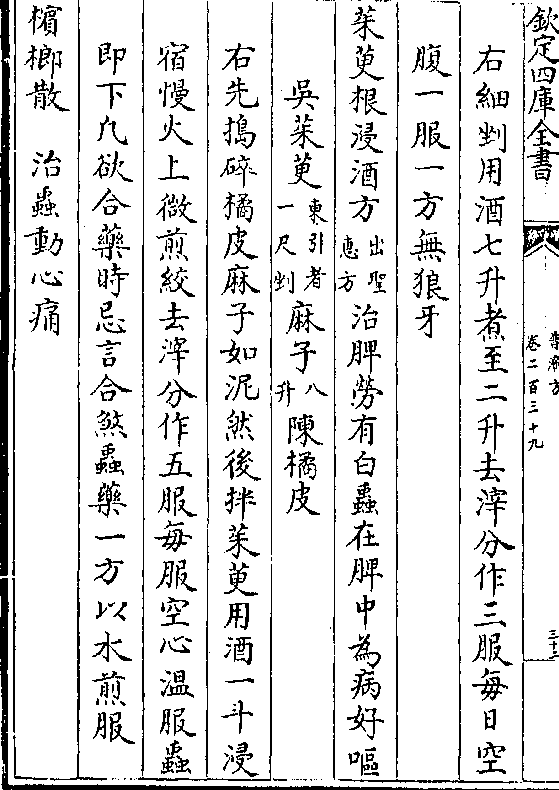 欽定四庫全書
普濟方
卷二百三十九
三十三
右細剉用酒七升煮至二升去滓分作三服每日空
腹一服一方無狼牙
茱萸根浸酒方出聖惠方治脾勞有白蟲在脾中為病好嘔
吳茱萸東引者一尺剉麻子八升陳橘皮
右先搗碎橘皮麻子如泥然後拌茱萸用酒一斗浸
宿慢火上微煎絞去滓分作五服每服空心溫服蟲
即下凡欲合藥時忌言合煞蟲藥一方以水煎服
檳榔散 治蟲動心痛